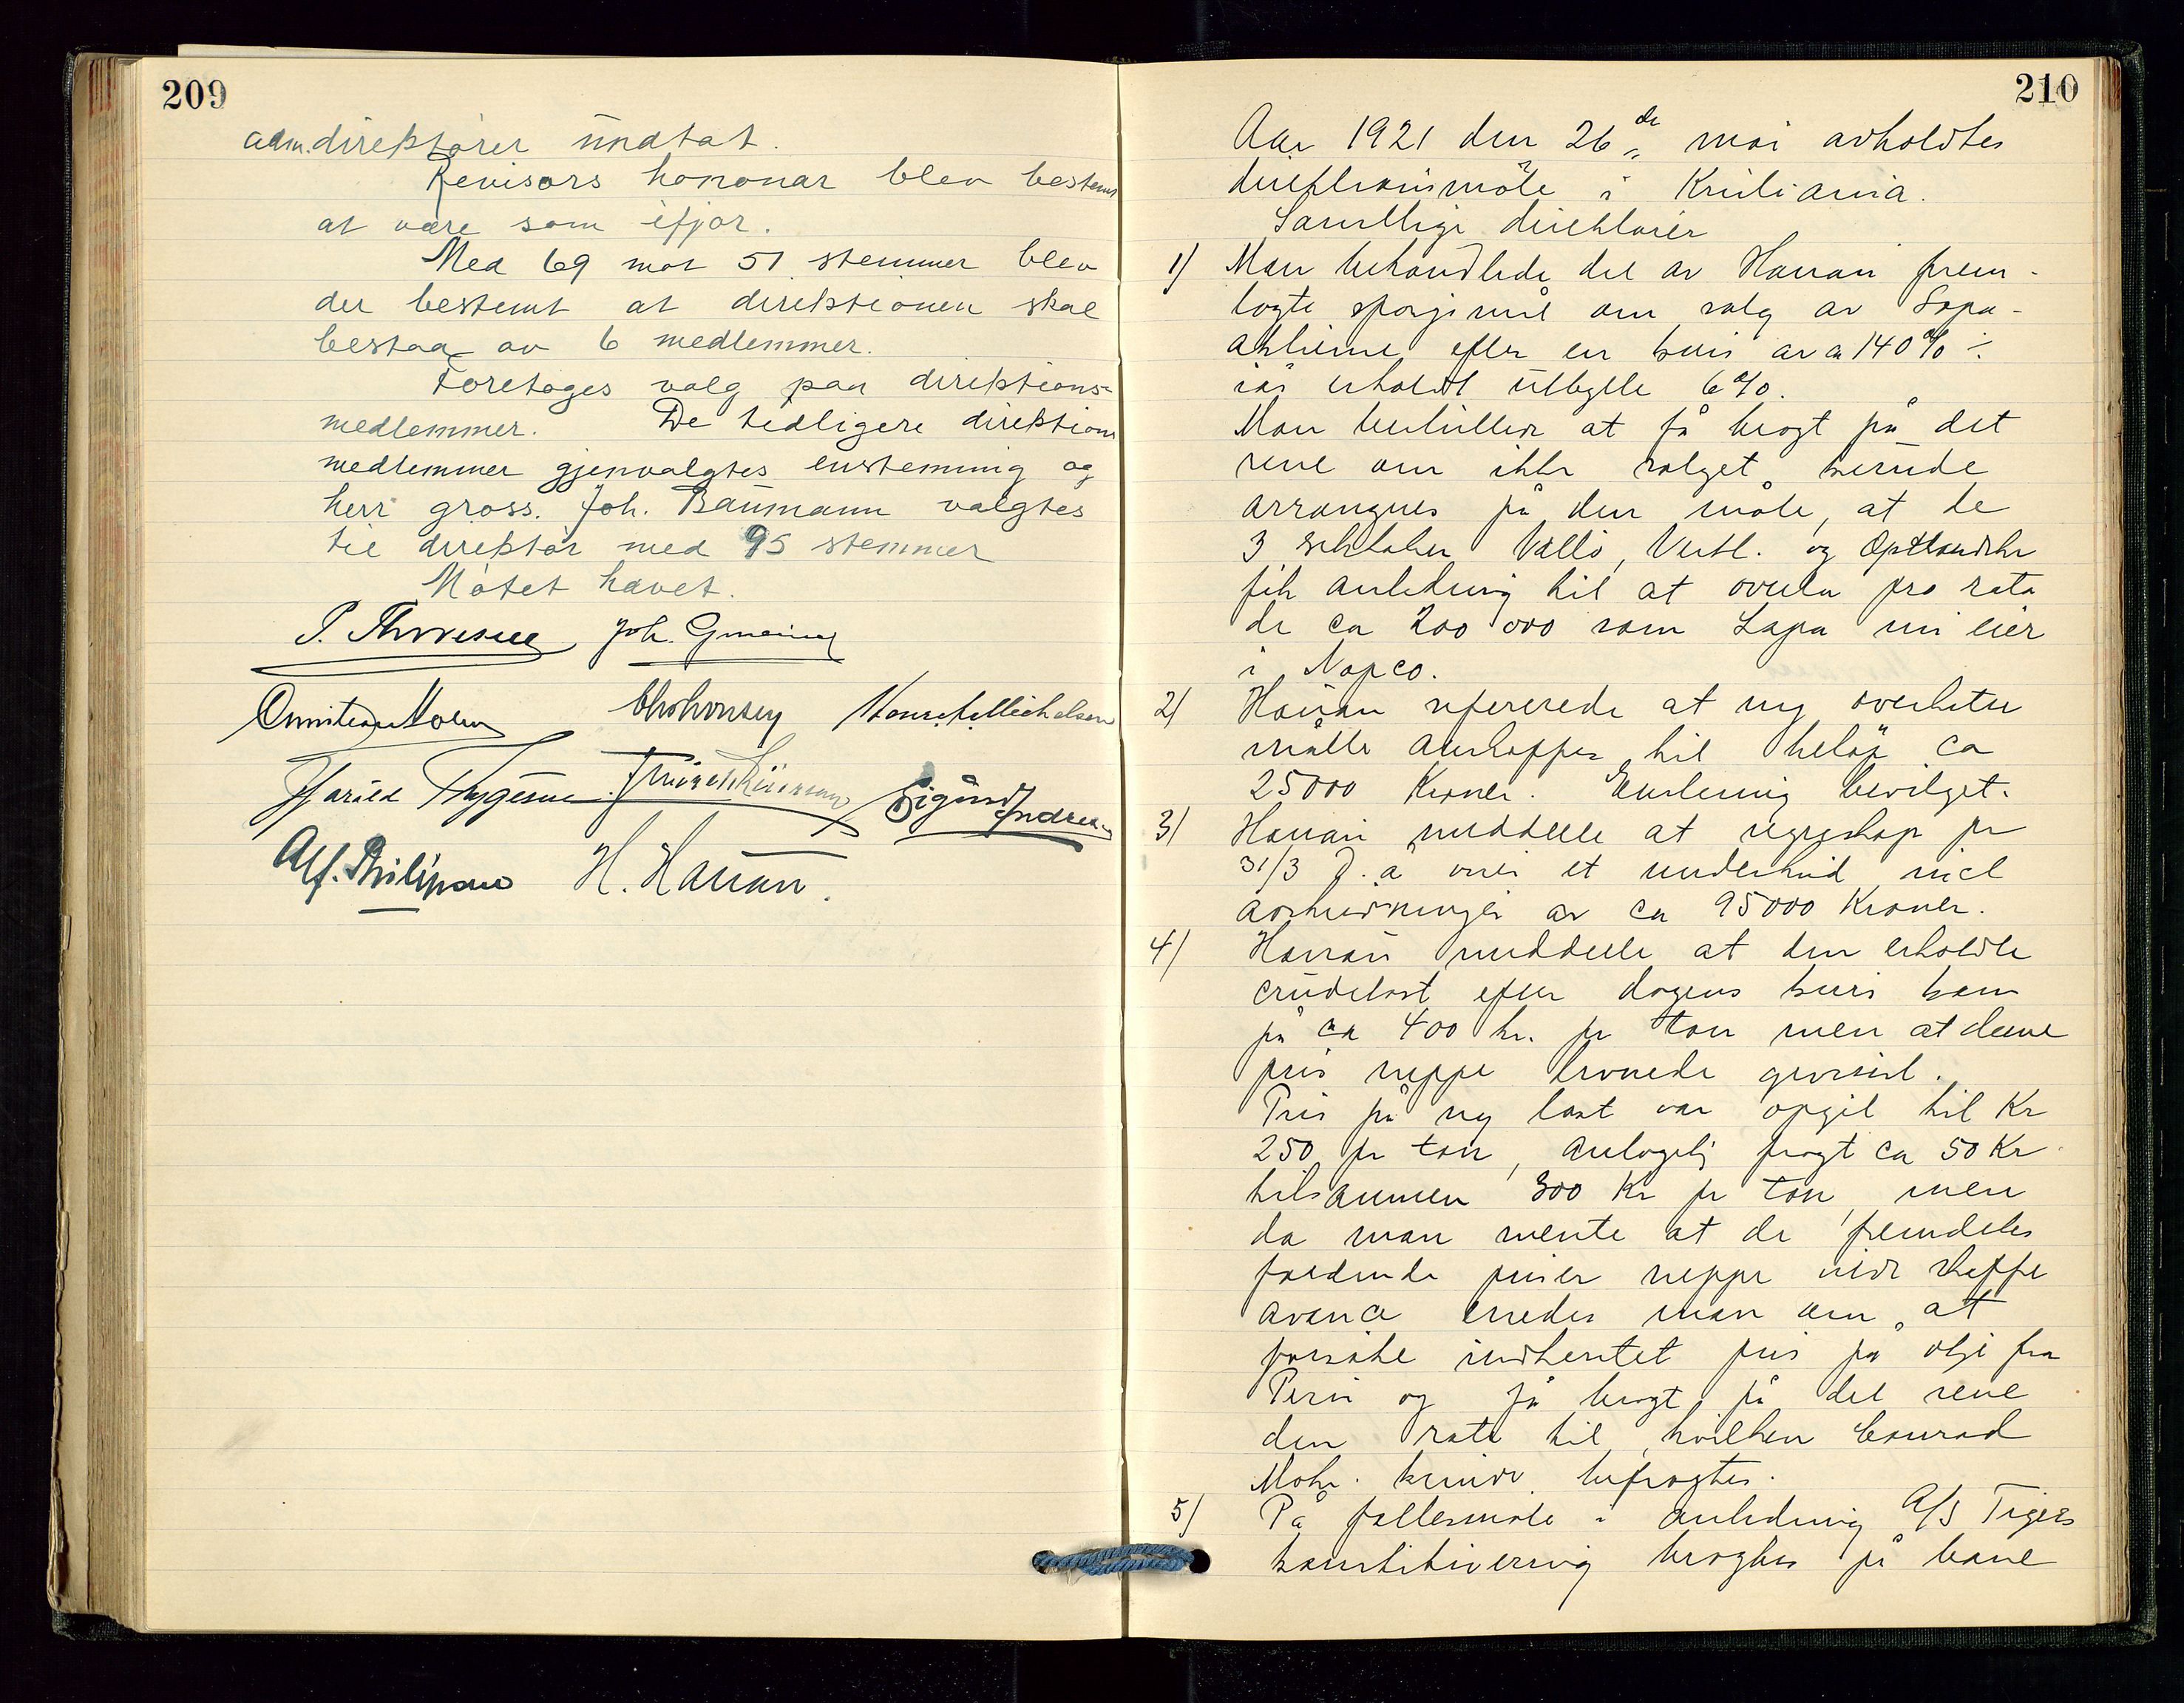 209
adm. direktører undtat.
Revisors honorar blev bestemt
at være som ifjor.
Med 69 mot 51 stemmer blev
der bestemt at direktionen skal
bestaa av 6 medlemmer.
Foretages valg paa direktions-
medlemmer. De tedligere direktions
medlemmer gjenvalgtes enstemmig og
herr gross. Joh. Baumann valgtes
til direktør med 95 stemmer
Møtet hævet.
Joh.
Harald Thygesen Sigurd
Alf. Philipsen H. Hauan.
210
Aar 1921 den 26de mai avholdtes
direktionsmøte i Kristiania.
Samtlige direktører
1) Man behandlede det av Hauan frem-
lagte spørsmål om salg av Lapa-
aktierne efter en kurs av ca 140% ÷
iår erholdt utbytte 6%.
Man beslutter at få bragt på det
rene om ikke salget kunde
arrangeres på den måte, at de
3 selskaper Vallø, Vestl. og Oplandske
fik anledning til at overta pro rata
de ca 200 000 som Lapa nu eier
i Napco.
2) Hauan refererede at ny overheter
måtte anskaffes til beløp ca
25000 Kroner. Enstemmig bevilget.
3) Hauan meddelte at regnskap pr
31/3 d.å viser et underskud incl
avskrivninger av ca 95000 Kroner.
4) Hauan meddelte at den erholdte
crudelast efter dagens kurs kom
på ca 400 kr. pr ton men at denne
pris neppe levnede gevinst.
Pris på ny last var opgit til Kr
250 pr ton, antagelig fragt ca 50 Kr
tilsammen 300 Kr pr ton, men
da man mente at de fremdeles
faldende priser neppe vilde skaffe
avance enedes man om at
forsøke indhentet pris på olje fra
Peru og få bragt på det rene
den rate til hvilken Conrad
Mohr kunde befragtes.
5) På fellesmøte i anledning A/S Tigers
konstituering bragtes på bane